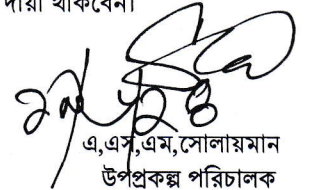 দায়ী থাকবেন।
এ,এস,এম,সোলায়মান
উপপ্রকল্প পরিচালক